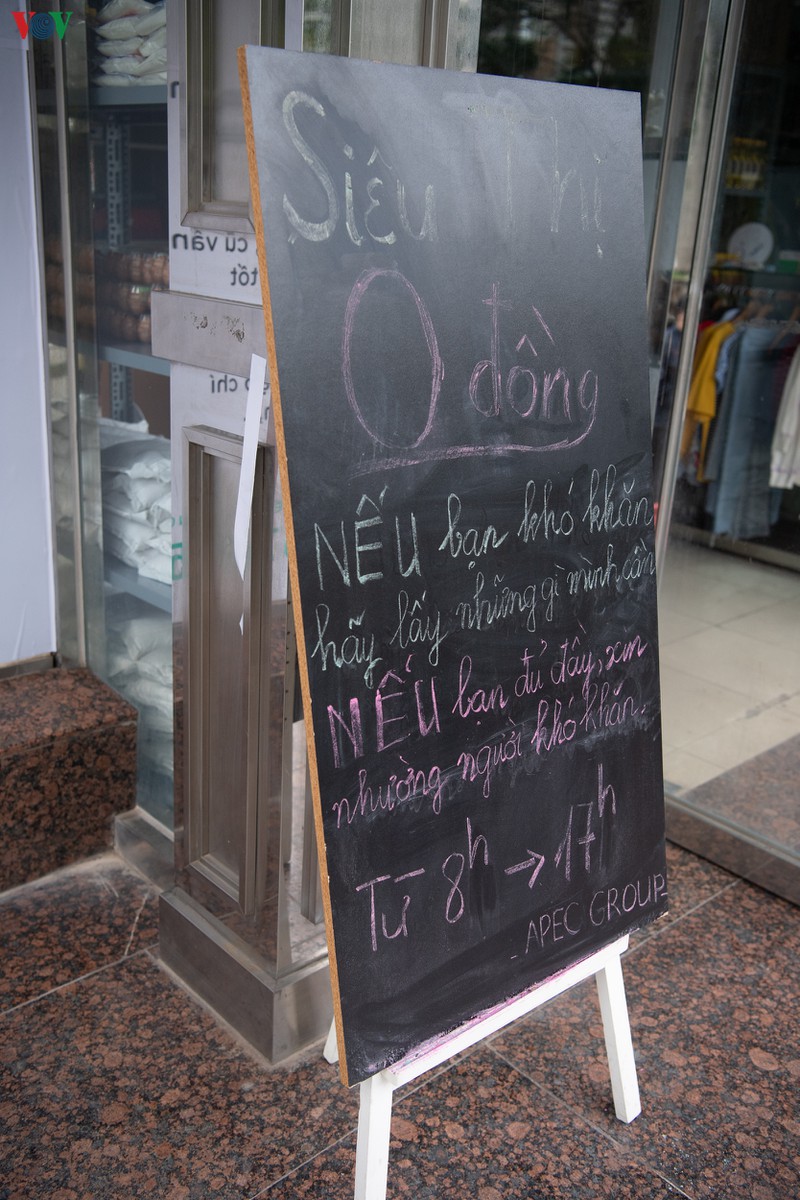 VOV
Siêu Thị
0 đồng
NẾU bạn khó khăn
hãy lấy những gì mình cần
NẾU bạn đủ đầy, xin
nhường người khó khăn.
Từ 8h → 17h
- APEC GROUP-
cũ vẫn
tốt